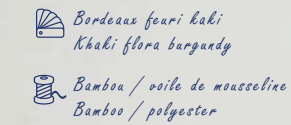 Bordeaux feuri kaki
Khaki flora burgundy
Bambou / voile de mousseline
Bamboo / polyester